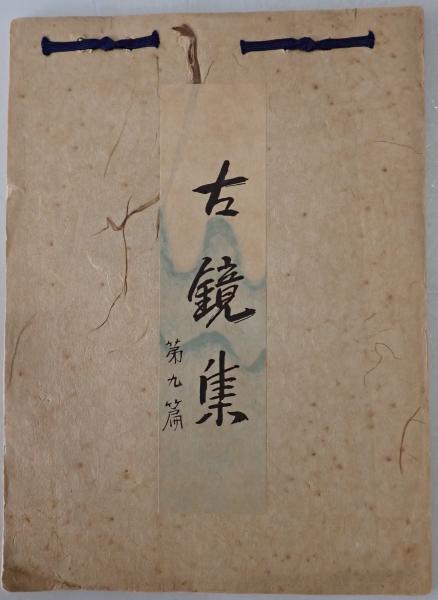 古鏡集
第九篇